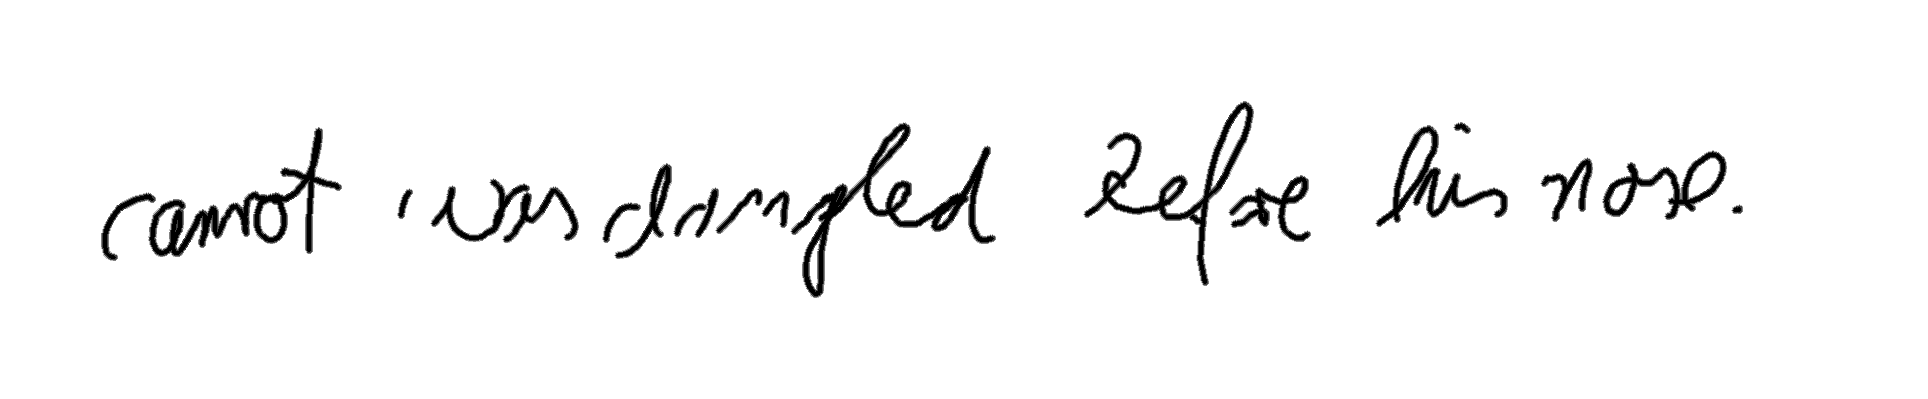 carrot was dangled before his nose.